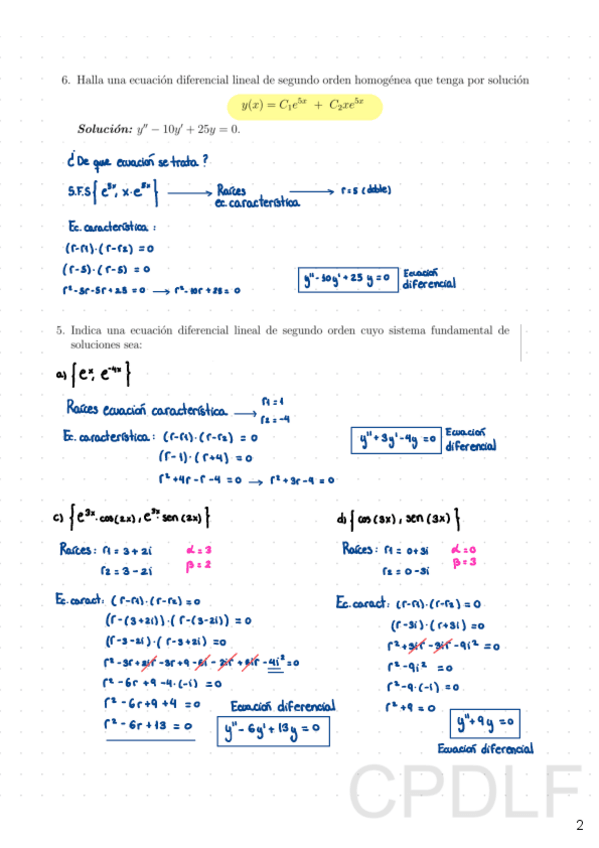 6. Halla una ecuación diferencial lineal de segundo orden homogénea que tenga por solución
y(x) = C₁e⁵ˣ + C₂xe⁵ˣ
Solución: y'' − 10y' + 25y = 0.
¿De que ecuación se trata?
S.F.S {e⁵ˣ, x·e⁵ˣ} → Raíces ec. característica → r=5 (doble)
Ec. característica:
(r-r₁)·(r-r₂) = 0
(r-5)·(r-5) = 0
r²-5r-5r+25=0 → r²-10r+25=0
y''-10y'+25y=0 Ecuación diferencial
5. Indica una ecuación diferencial lineal de segundo orden cuyo sistema fundamental de
soluciones sea:
a) {eˣ, e⁻⁴ˣ}
Raíces ecuación característica → r₁=1 r₂=-4
Ec. característica: (r-r₁)·(r-r₂) = 0
(r-1)·(r+4) = 0
r²+4r-r-4=0 → r²+3r-4=0
y''+3y'-4y=0 Ecuación diferencial
c) {e³ˣ·cos(2x), e³ˣ·sen(2x)}
Raíces: r₁ = 3+2i α=3
r₂ = 3-2i β=2
Ec. caract: (r-r₁)·(r-r₂)=0
(r-(3+2i))·(r-(3-2i)) = 0
(r-3-2i)·(r-3+2i) = 0
r²-3r+2ir-3r+9-6i-2ir+6ir-4i²=0
r²-6r+9-4·(-1) = 0
r²-6r+9+4 = 0
r²-6r+13 = 0
Ecuación diferencial
y''-6y'+13y=0
d) {cos(3x), sen(3x)}
Raíces: r₁ = 0+3i α=0
r₂ = 0-3i β=3
Ec. caract: (r-r₁)·(r-r₂)=0
(r-3i)·(r+3i) = 0
r²+3ir-3ir-9i² = 0
r²-9i² = 0
r²-9·(-1) = 0
r²+9 = 0
y''+9y=0
Ecuación diferencial
CPDLF
2